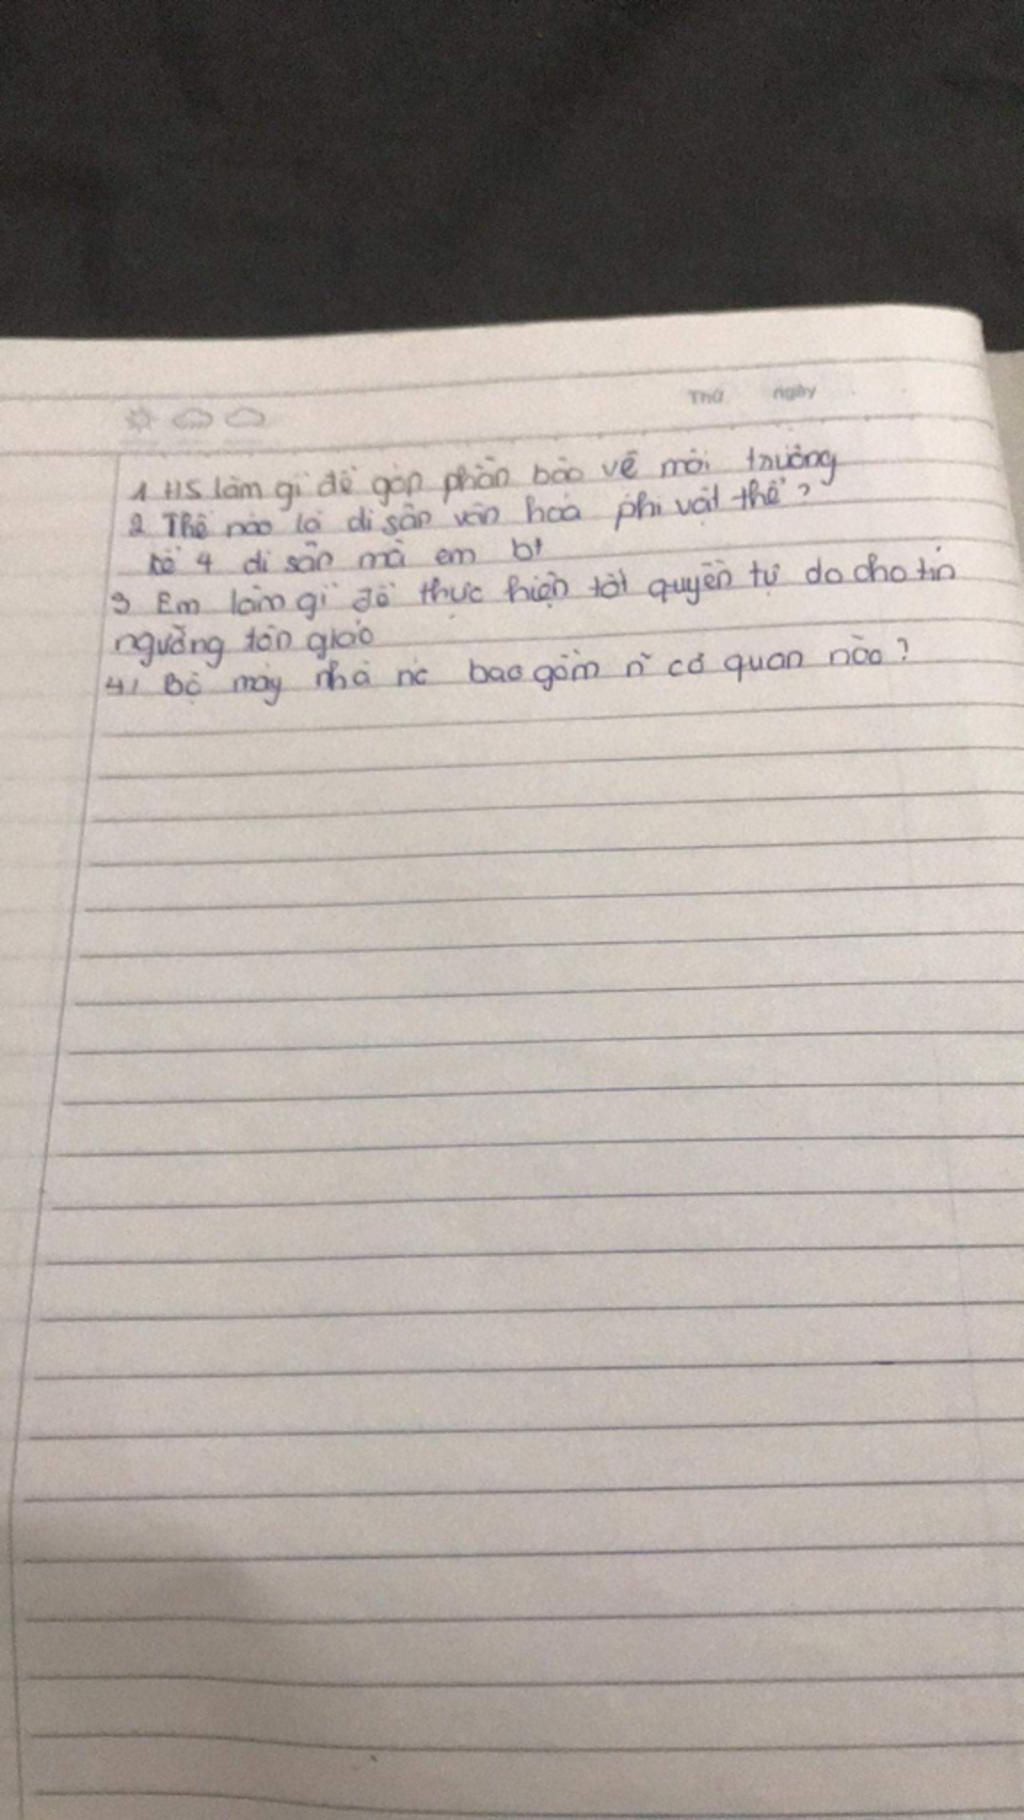 Thứ ngày
1 HS làm gì để góp phần bảo vệ môi trường
2 Thế nào là di sản văn hoá phi vật thể?
kể 4 di sản mà em bt
3 Em làm gì để thực hiện tốt quyền tự do cho tín
ngưỡng tôn giáo
4, Bộ máy nhà nc bao gồm n~ cơ quan nào?